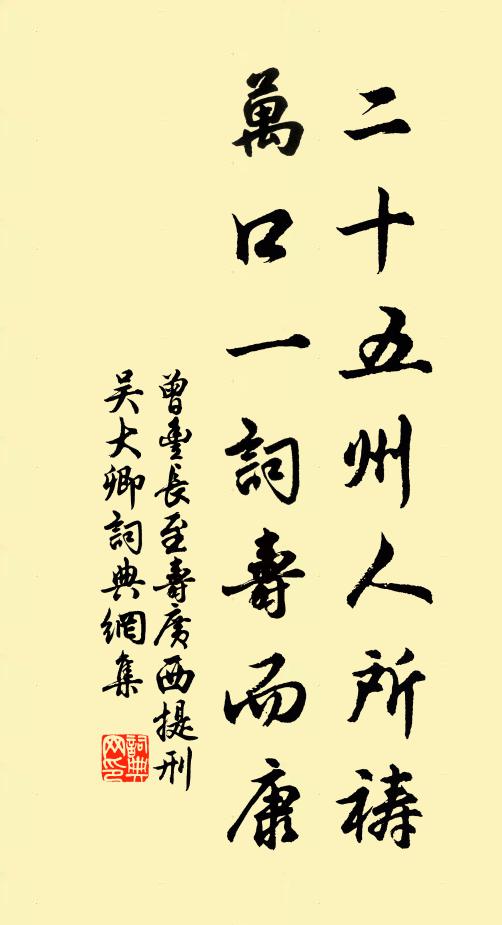 二十五州人所禱
萬口一詞壽而康
曾豐長至壽廣西提刑
吴大卿詞典網集
詞典网印